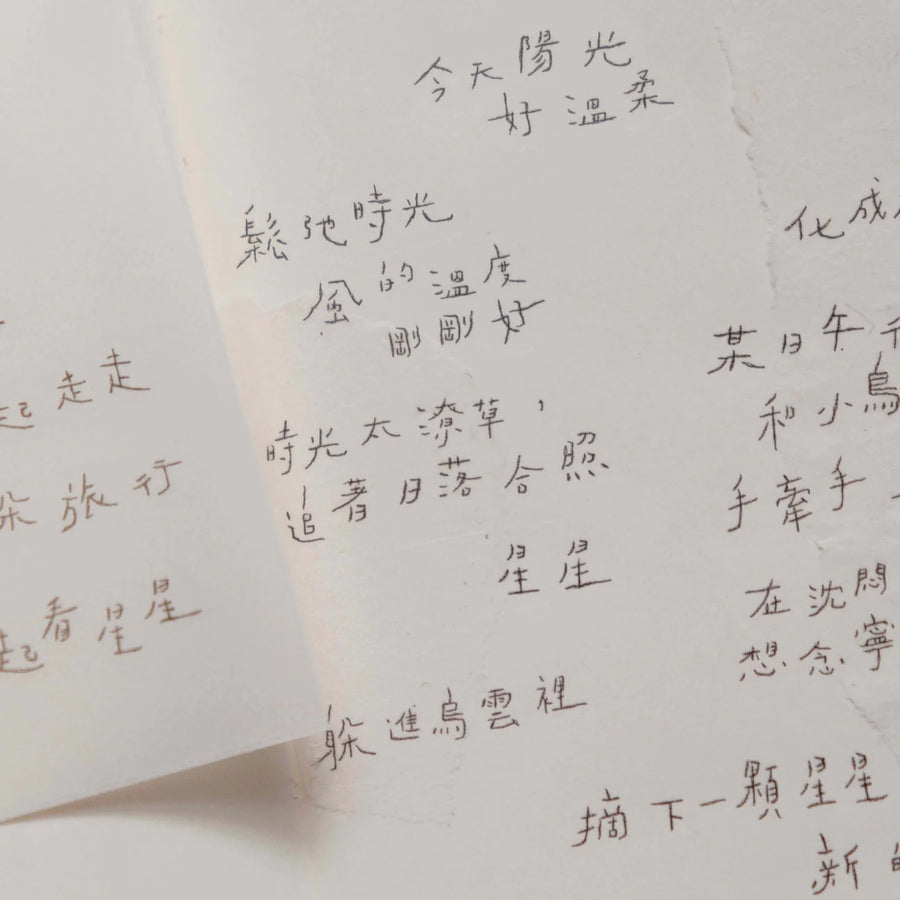 今天陽光
好溫柔
鬆弛時光
風的溫度
剛剛好
時光太潦草，
追著日落合照
星星
躲進烏雲裡
起走走
旅行
起看星星
化成
某日午
和小鳥
手牽手
在沈悶
想念寧
摘下一顆星星
新